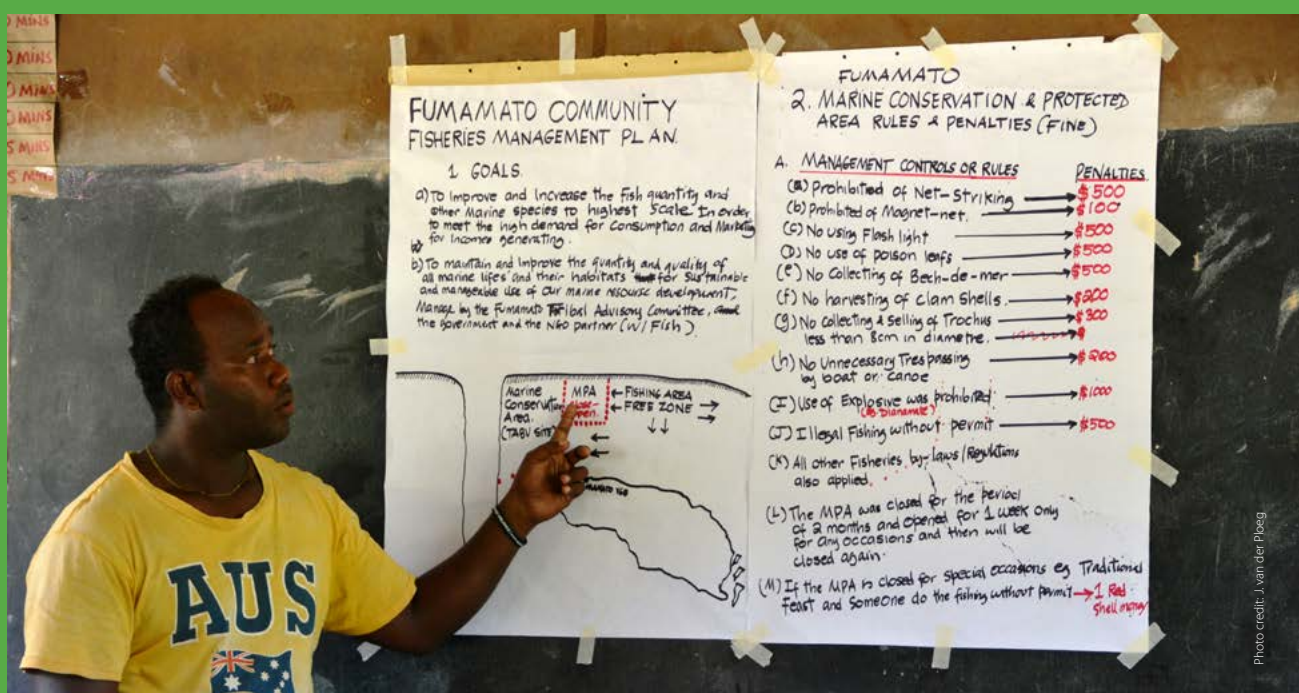 0 MINS
0 MINS
0 MINS
0 MINS
5 MINS
5 MINS
FUMAMATO COMMUNITY
FISHERIES MANAGEMENT PLAN.
1 GOALS.
a) To Improve and Increase the Fish quantity and
other Marine species to highest Scale In order
to meet the high demand for consumption and Marketing
for Income generating.
b) To maintain and Improve the quantity and quality of
all marine lifes and their habitats for Sustainable
and manageable use of Our marine resource development,
Manage by the Fumamato Tribal Advisory Committee,
the government and the NGO partner (W/Fish).
Marine
Conservation
Area.
(TABU SITE)
MPA
close-
open.
← FISHING AREA
← FREE ZONE →
FUMAMATO
2. MARINE CONSERVATION & PROTECTED
AREA RULES & PENALTIES (FINE)
A. MANAGEMENT CONTROLS OR RULES PENALTIES
(a) Prohibited of Net-Striking → $500
(b) Prohibited of Magnet-net. → $100
(c) No using Flash light → $500
(D) No use of poison leafs → $500
(e) No Collecting of Bech-de-mer → $500
(f) No harvesting of clam Shells. → $200
(g) No collecting & Selling of Trochus → $300
less than 8cm in diametre. $
(h) No Unnecessary Trespassing → $200
by boat or canoe
(I) Use of Explosive was prohibited → $1000
(J) Illegal Fishing without permit → $500
(K) All other Fisheries by-laws/Regulations
also applied.
(L) The MPA was closed for the period
of 2 months and opened for 1 week only
for any occasions and then will be
closed again.
(M) If the MPA is closed for special occasions eg Traditional
Feast and Someone do the fishing without permit → 1 Red
Shell money
AUS
Photo credit: J. van der Ploeg